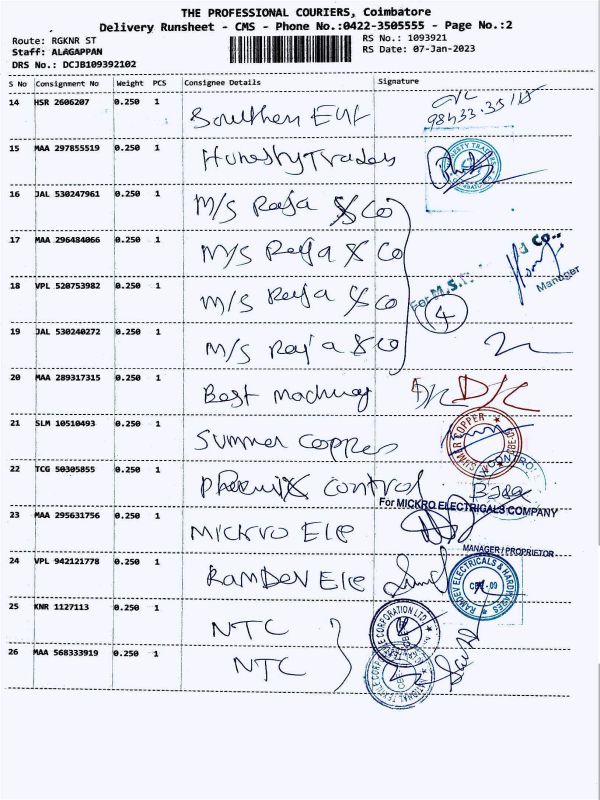 THE PROFESSIONAL COURIERS, Coimbatore
Delivery Runsheet - CMS - Phone No.:0422-3505555 - Page No.:2
Route: RGKNR ST
RS No.: 1093921
Staff: ALAGAPPAN
RS Date: 07-Jan-2023
DRS No.: DCJB109392102
S No Consignment No Weight PCS Consignee Details Signature
14 HSR 2606207 0.250 1 Southern
15 MAA 297855519 0.250 1 Traders
16 JAL 530247961 0.250 1 M/S Raja & Co
17 MAA 296484066 0.250 1 M/S Raja & Co
Manager
18 VPL 520753982 0.250 1 M/S Raja & Co
For M.S.
4
19 JAL 530240272 0.250 1 M/S Raja & Co
20 MAA 289317315 0.250 1 Best
21 SLM 10510493 0.250 1 Summer Copper
22 TCG 50305855 0.250 1 Phoenix Control
For MICKRO ELECTRICALS COMPANY
23 MAA 295631756 0.250 1 Mickro Ele
MANAGER / PROPRIETOR
24 VPL 942121778 0.250 1 RAMDEV Ele
RAMDEV ELECTRICALS & HARDWARES
25 KNR 1127113 0.250 1 NTC
26 MAA 568333919 0.250 1 NTC